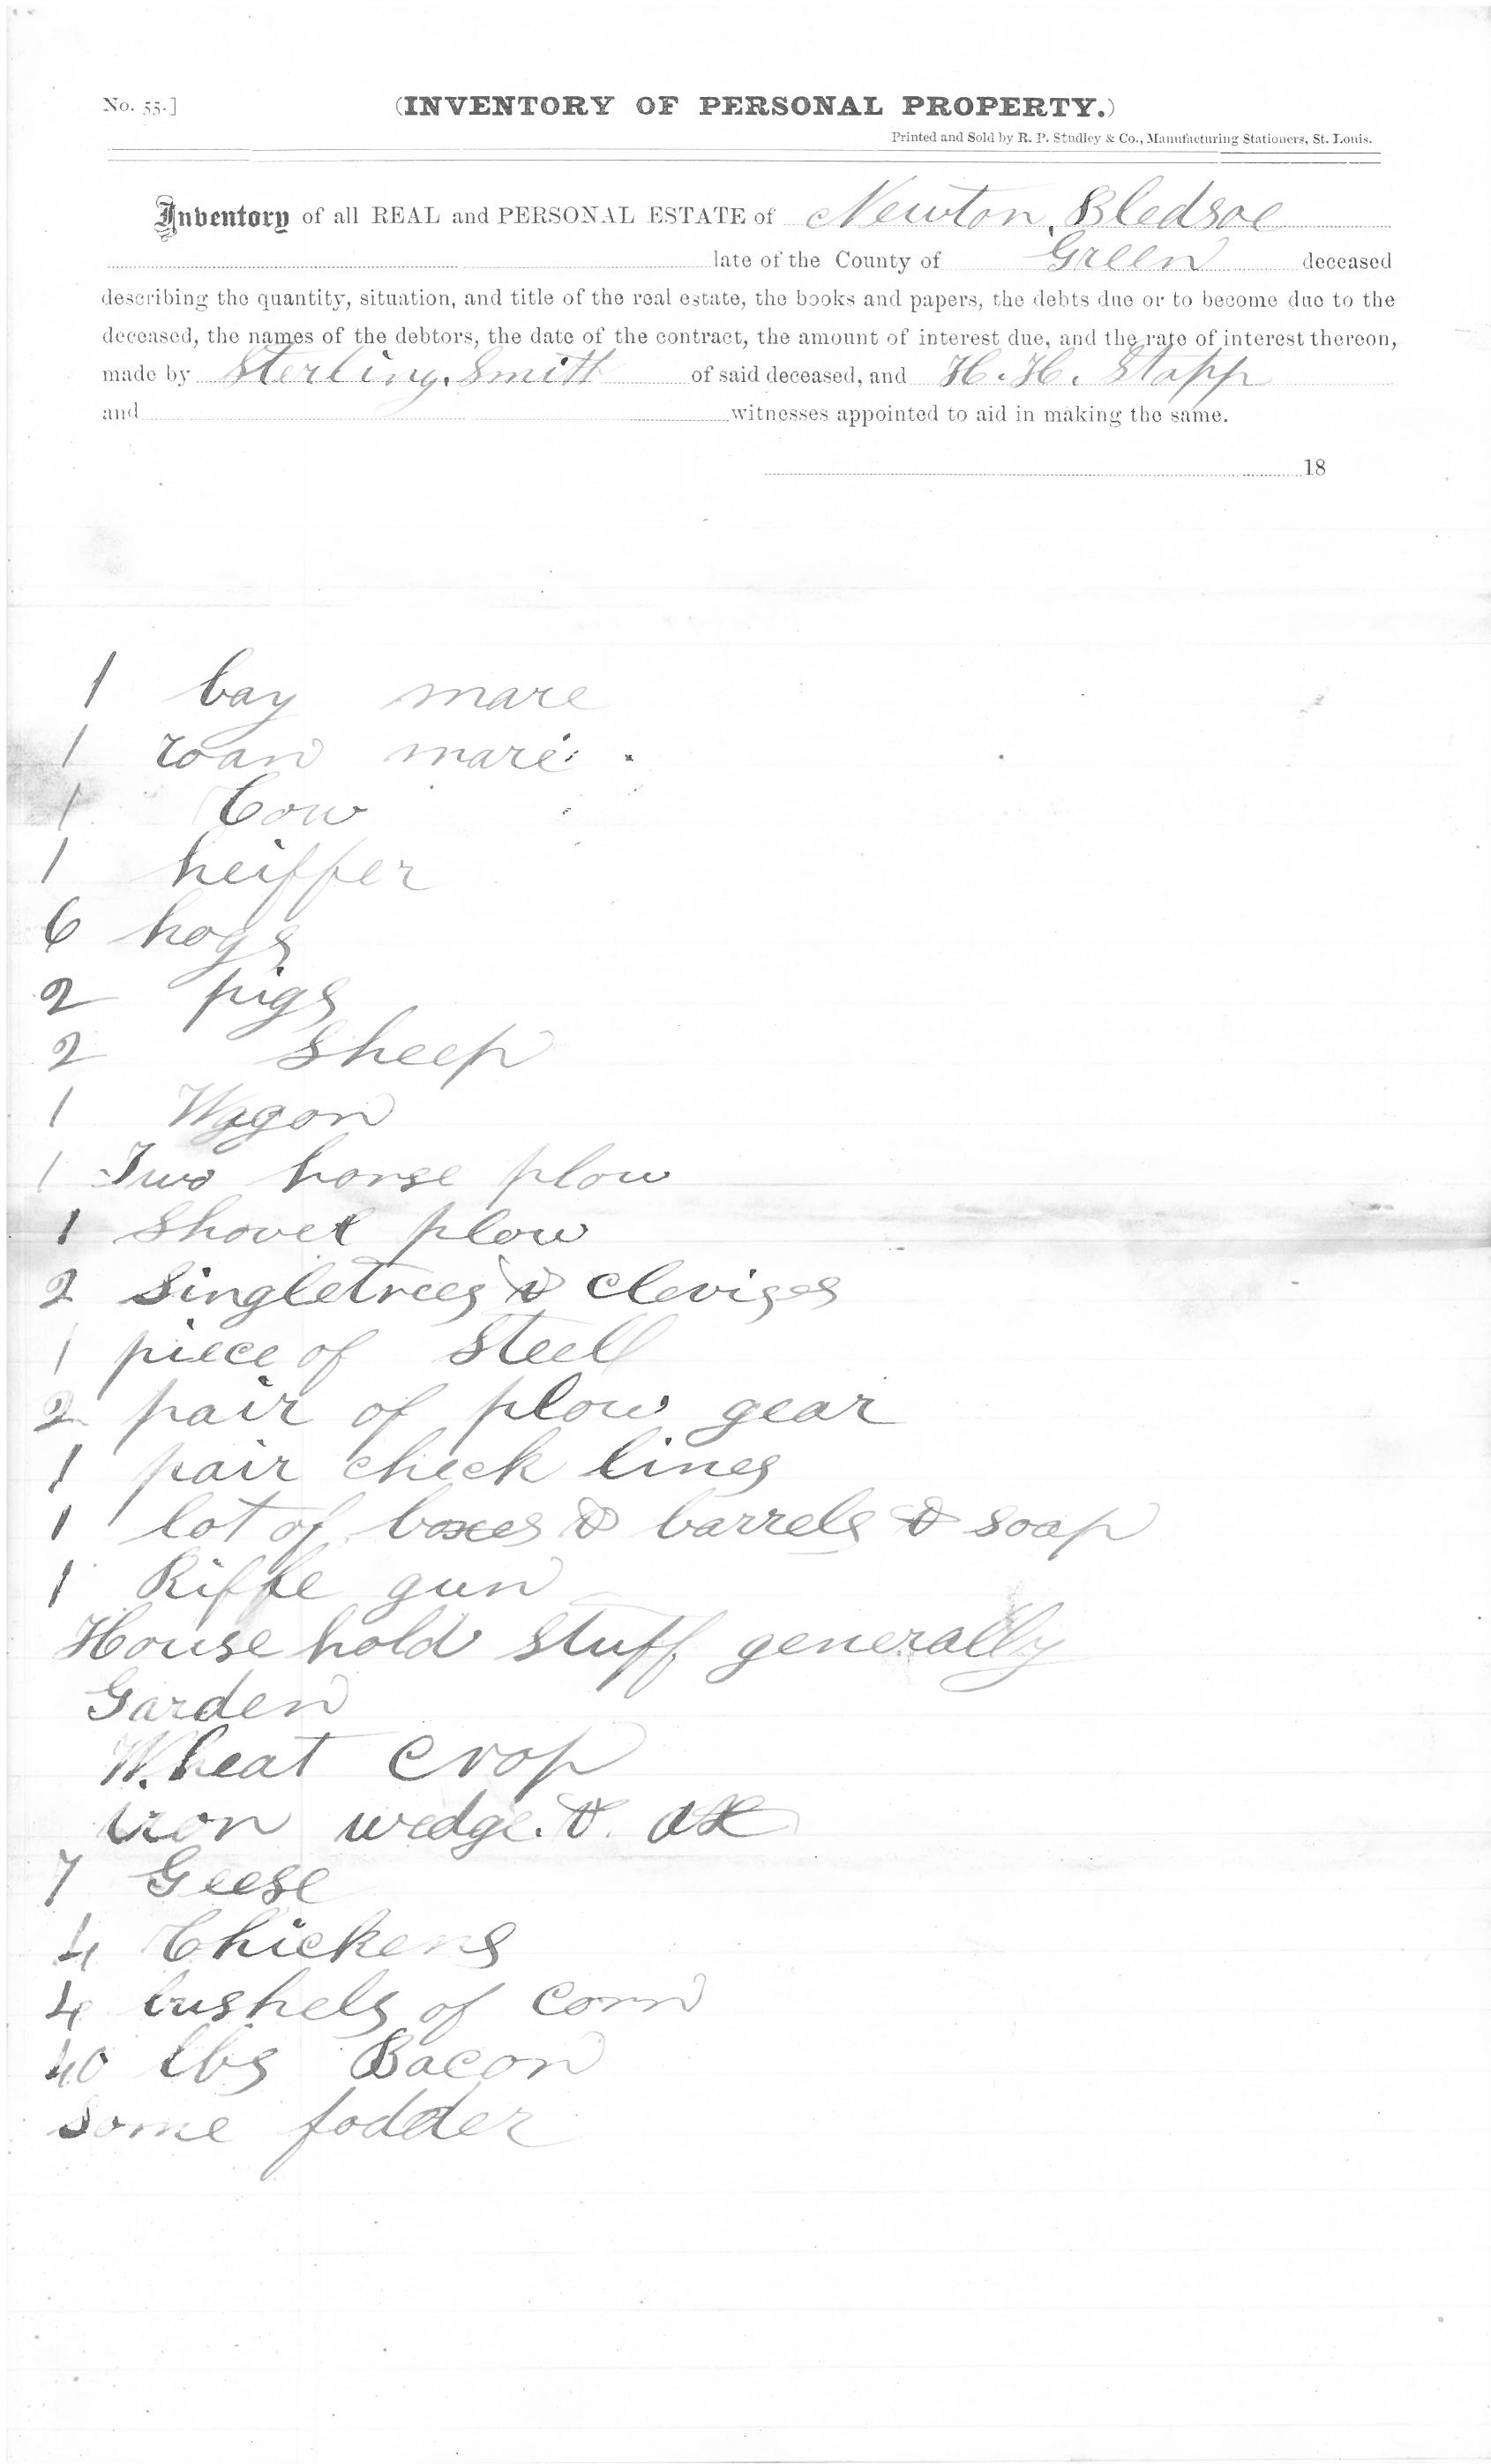 No. 55.]
(INVENTORY OF PERSONAL PROPERTY.)
Printed and Sold by R. P. Studley & Co., Manufacturing Stationers, St. Louis.
Inventory of all REAL and PERSONAL ESTATE of Newton Bledsoe
late of the County of Green deceased
describing the quantity, situation, and title of the real estate, the books and papers, the debts due or to become due to the
deceased, the names of the debtors, the date of the contract, the amount of interest due, and the rate of interest thereon,
made by Sterling Smith of said deceased, and H. H. Stapp
and witnesses appointed to aid in making the same.
18
1 bay mare
1 roan mare
1 Cow
1 heiffer
6 hogs
2 pigs
2 Sheep
1 Wagon
1 Two horse plow
1 Shovel plow
2 Singletrees & clevises
1 piece of Steell
2 pair of plow gear
1 pair check lines
1 lot of boxes & barrels & soap
1 Riffle gun
House hold stuff generally
Garden
Wheat crop
iron wedge & ax
7 Geese
4 Chickens
4 bushels of corn
40 lbs Bacon
Some fodder